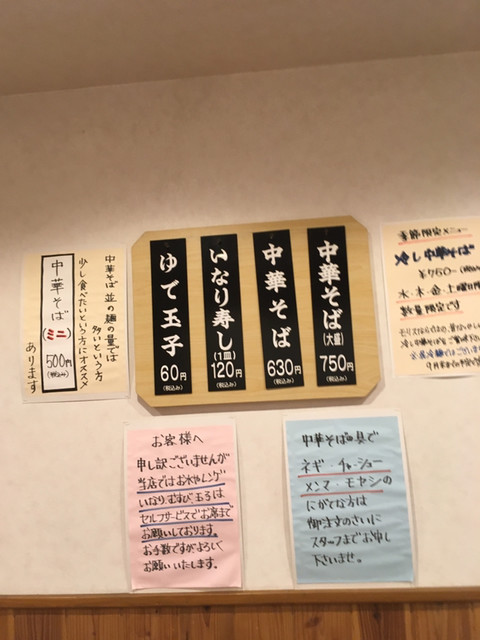 中華そば(大盛)750円(税込み)
中華そば 630円(税込み)
いなり寿し(1皿)120円(税込み)
ゆで玉子 60円(税込み)
中華そば 並の麺の量では
多いという方
少し食べたいという方にオススメ
中華そば(ミニ)500円(税込み)
あります
季節限定メニュー
冷し中華そば
¥750-
水・木・金・土曜日
数量限定です
お客様へ
申し訳ございませんが
当店ではお水やレンゲ
いなり、むすび、玉子は
セルフサービスでお席まで
お願いしております。
お手数ですがよろしく
お願いいたします。
中華そばの具で
ネギ・チャーシュー
メンマ・モヤシの
にがてな方は
御注文のさいに
スタッフまでお申し
下さいませ。